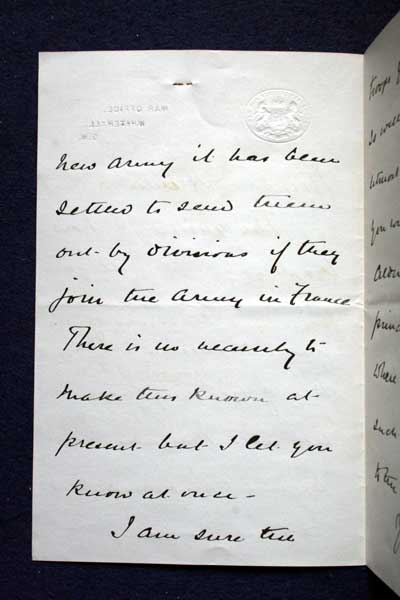 WAR OFFICE,
WHITEHALL,
S.W.
New Army it has been
settled to send them
out by divisions if they
join the Army in France
There is no necessity to
make this known at
present but I let you
know at once –
I am sure the
troops
is will
utmost
you
Alder
princ
where
such